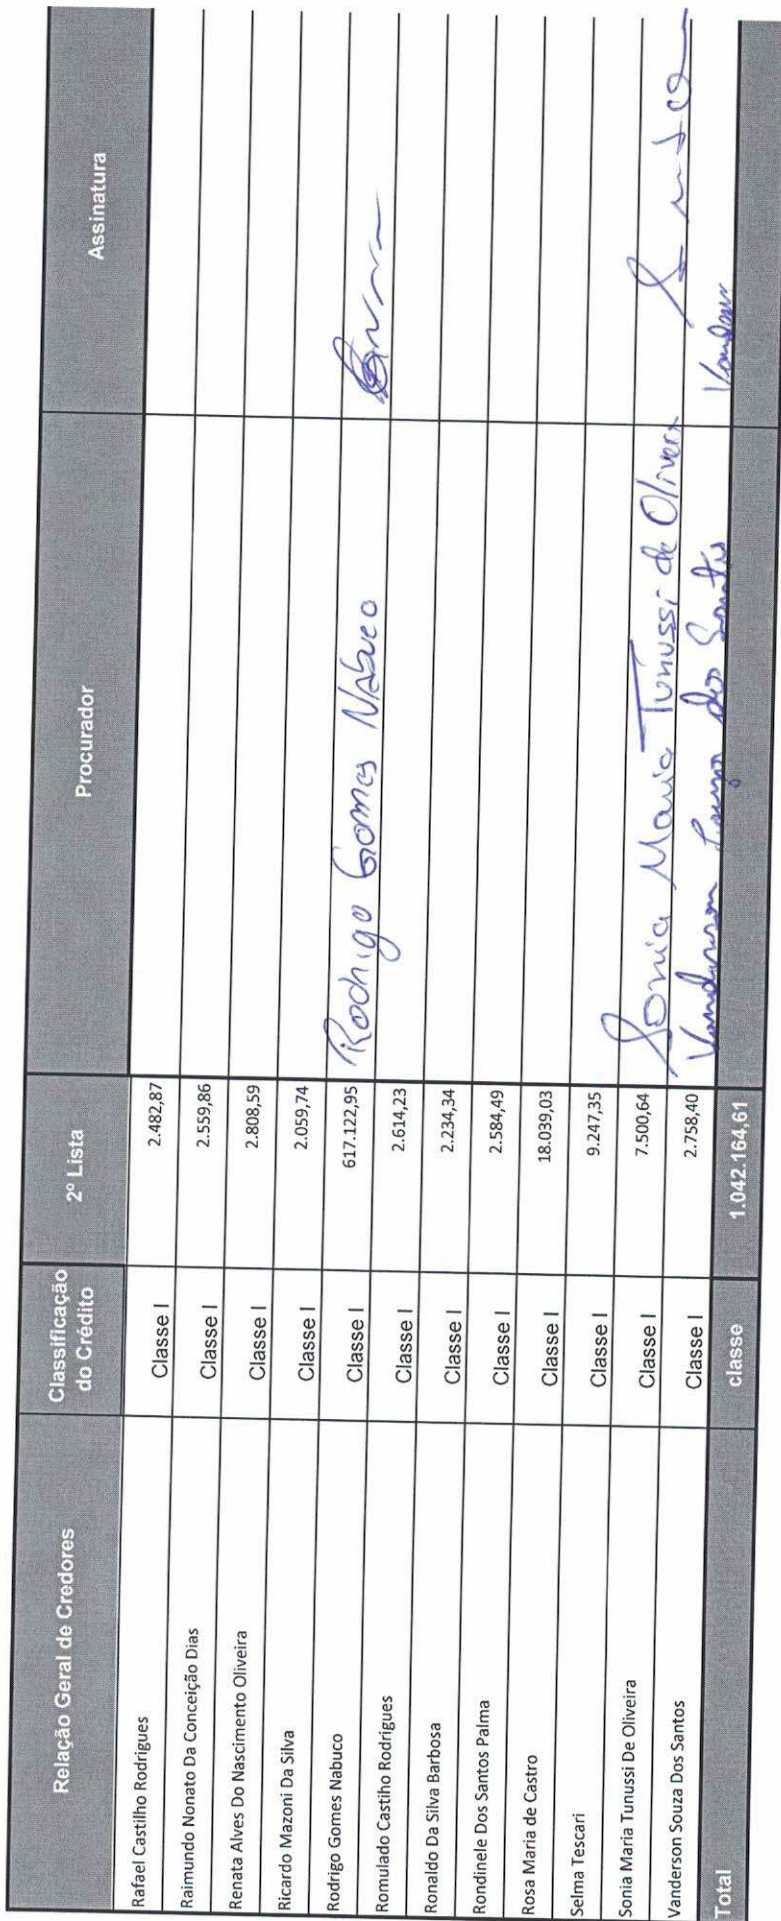 Relação Geral de Credores Classificação do Crédito 2º Lista Procurador Assinatura
Rafael Castilho Rodrigues Classe I 2.482,87
Raimundo Nonato Da Conceição Dias Classe I 2.559,86
Renata Alves Do Nascimento Oliveira Classe I 2.808,59
Ricardo Mazoni Da Silva Classe I 2.059,74
Rodrigo Gomes Nabuco Classe I 617.122,95 Rodrigo Gomes Nabuco
Romulado Castiho Rodrigues Classe I 2.614,23
Ronaldo Da Silva Barbosa Classe I 2.234,34
Rondinele Dos Santos Palma Classe I 2.584,49
Rosa Maria de Castro Classe I 18.039,03
Selma Tescari Classe I 9.247,35
Sonia Maria Tunussi De Oliveira Classe I 7.500,64 Sonia Maria Tunussi de Oliveira
Vanderson Souza Dos Santos Classe I 2.758,40 Vanderson Souza dos Santos
Total classe 1.042.164,61